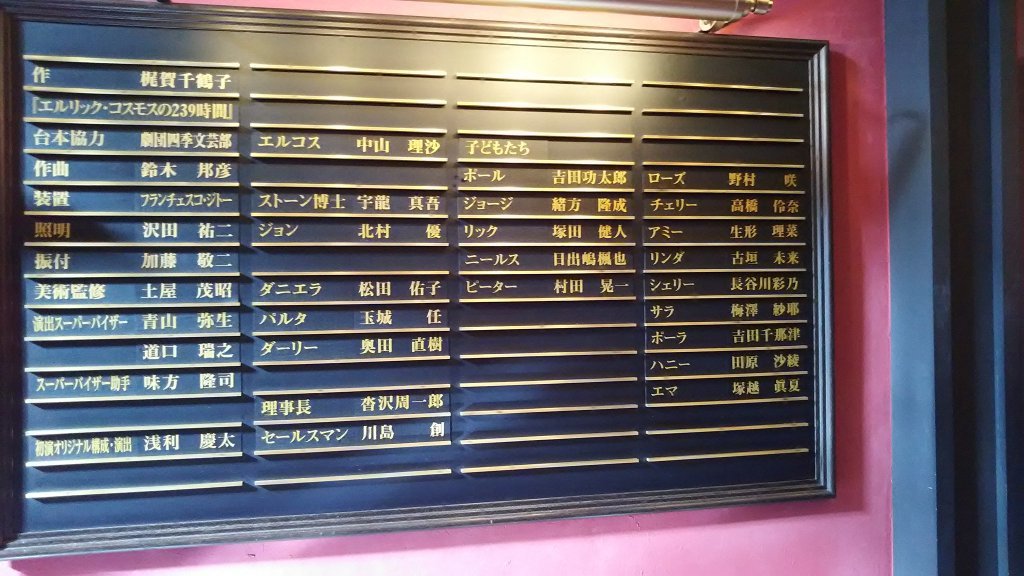 作 梶賀千鶴子
『エルリック・コスモスの239時間』
台本協力 劇団四季文芸部
作曲 鈴木 邦彦
装置 フランチェスコ・ジトー
照明 沢田 祐二
振付 加藤 敬二
美術監修 土屋 茂昭
演出スーパーバイザー 青山 弥生
道口 瑞之
スーパーバイザー助手 味方 隆司
初演オリジナル構成・演出 浅利 慶太
エルコス 中山 理沙
ストーン博士 宇龍 真吾
ジョン 北村 優
ダニエラ 松田 佑子
パルタ 玉城 任
ダーリー 奥田 直樹
理事長 沓沢周一郎
セールスマン 川島 創
子どもたち
ポール 吉田功太郎
ジョージ 緒方 隆成
リック 塚田 健人
ニールス 日出嶋楓也
ピーター 村田 晃一
ローズ 野村 咲
チェリー 高橋 伶奈
アミー 生形 理菜
リンダ 古垣 未来
シェリー 長谷川彩乃
サラ 梅澤 紗耶
ポーラ 吉田千那津
ハニー 田原 沙綾
エマ 塚越 眞夏